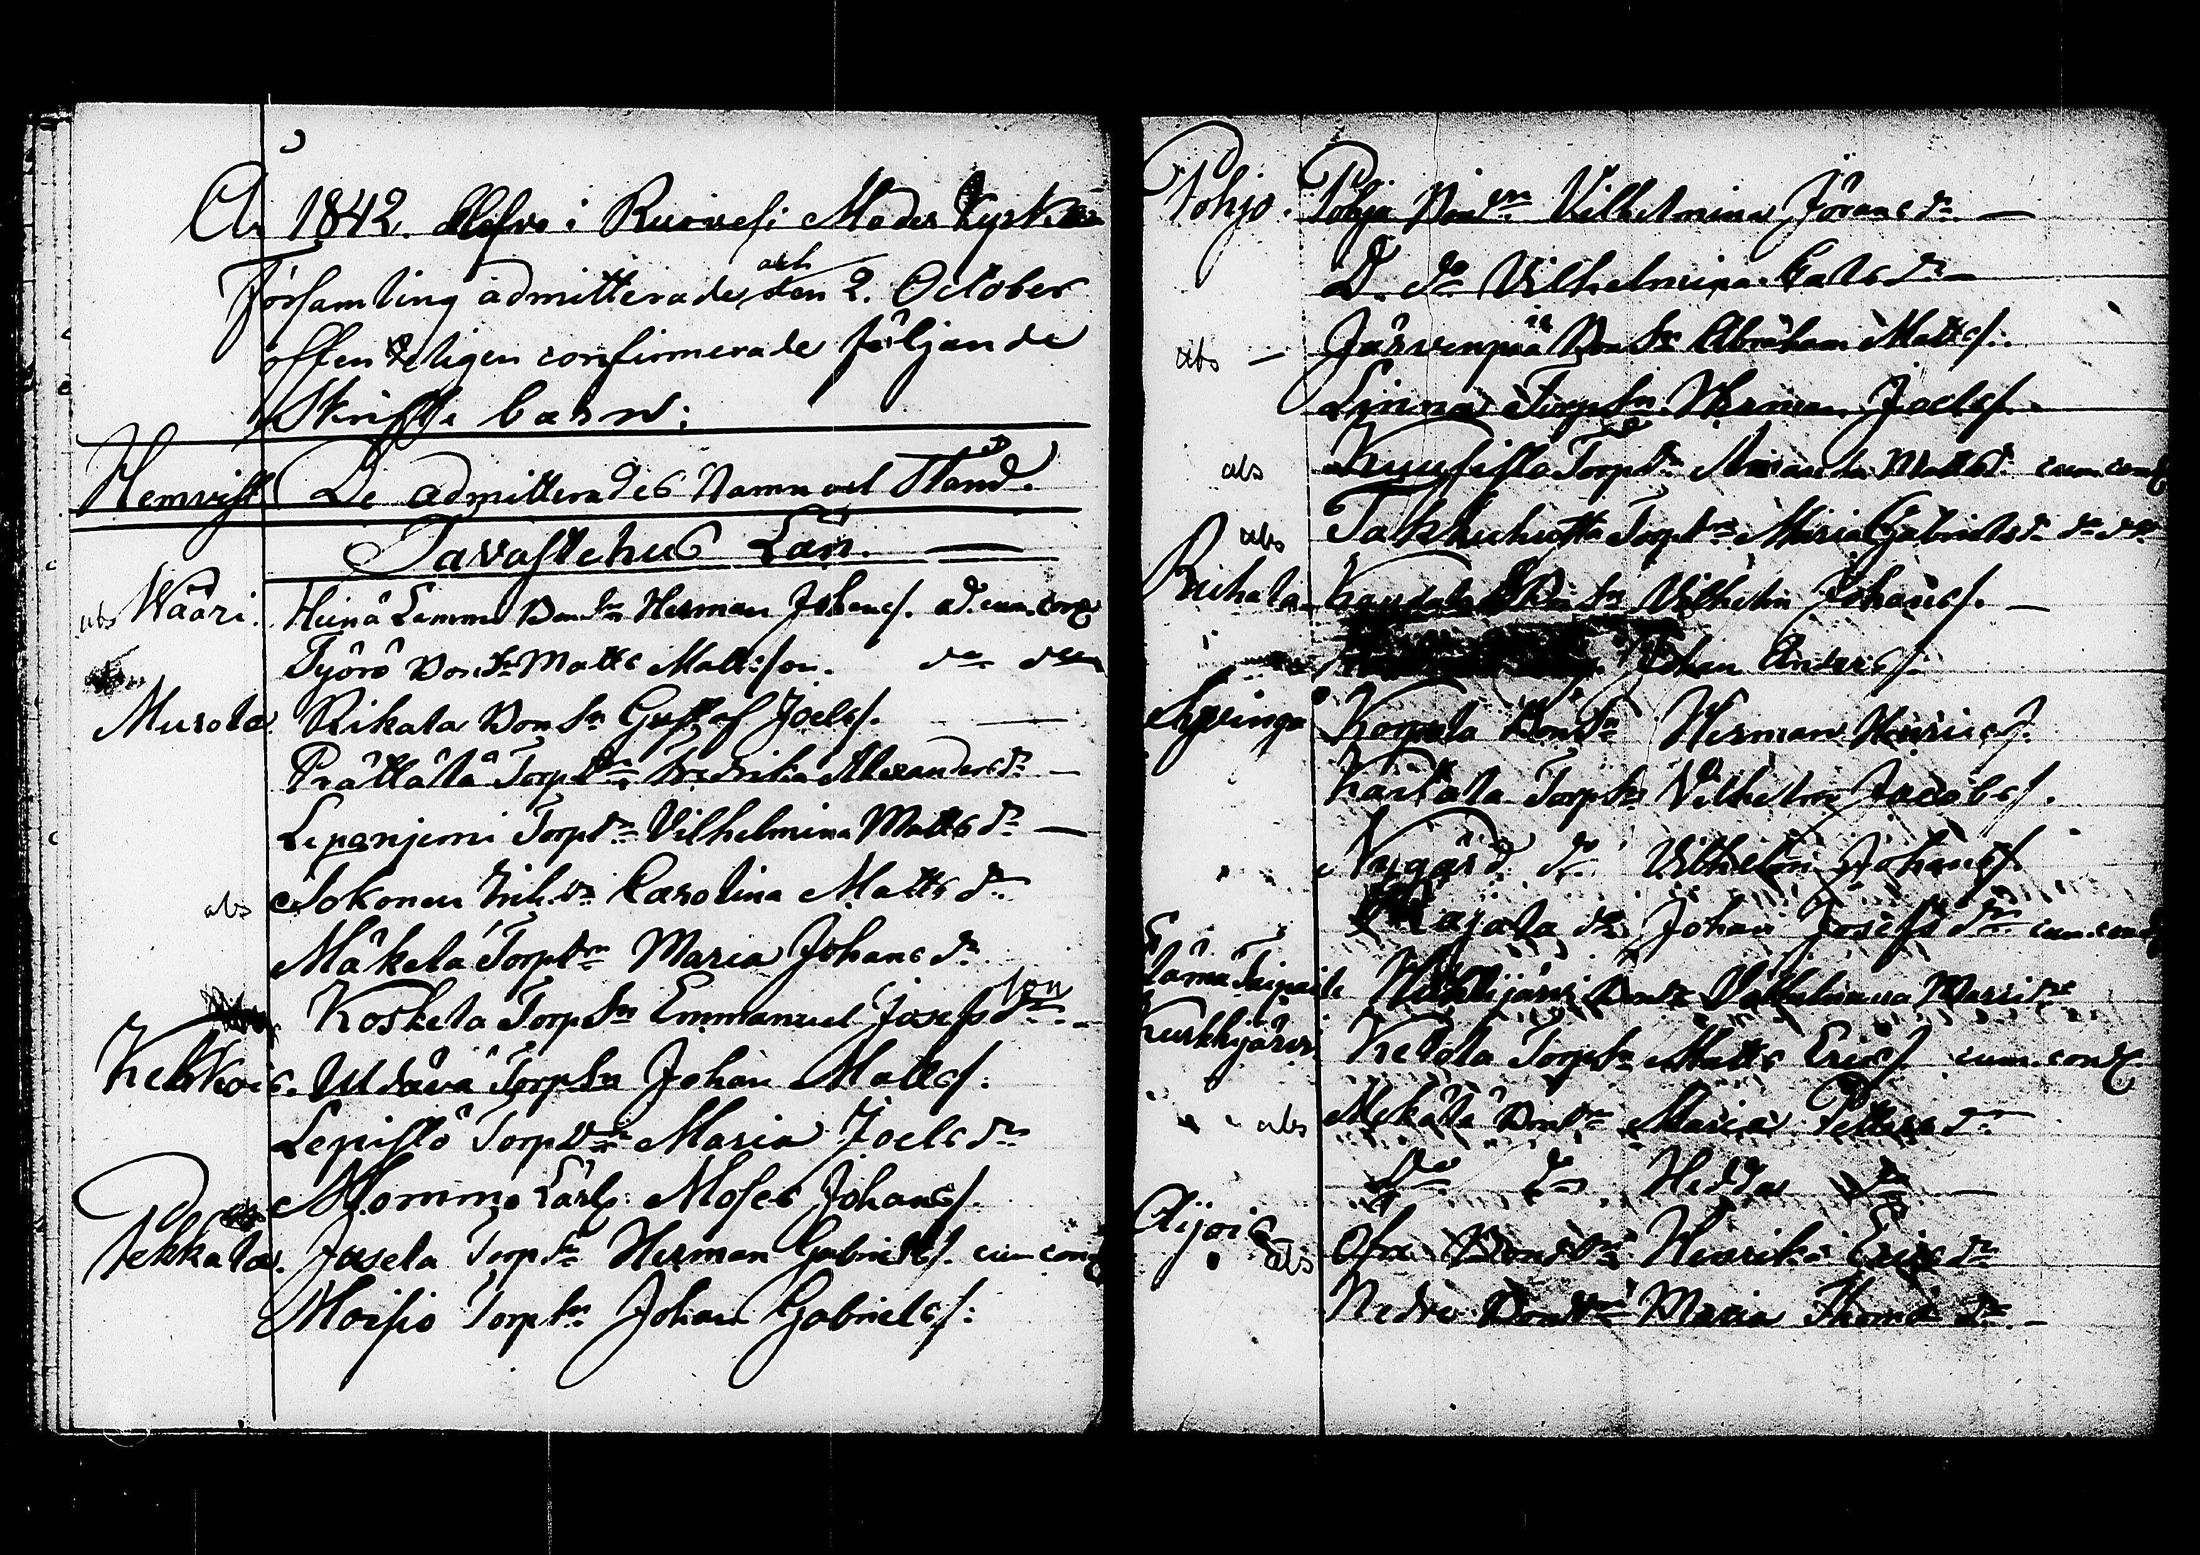 År 1842. blefvo i Ruovesi Moder Kyrko
Församling admitterade och den 2. October
offenteligen confirmerade följande
Skrifte barn:
Hemvist De admitterades Namn och Stånd.
Tavastehus Län.
abs Wääri. Heinä Lammi Bondsn Herman Johans. ad. cum. cong
Työrö Bondsn Matts Mattsson. do
Murola. Rikala Bondsn Gustaf Joels.
Prättälä Torpdr Fredrika Alexandersdr
Lepänjemi Torpdr Vilhelmina Mattsdr
abs Jokonen Inh.dr Carolina Mattsdr
Mäkelä Torpdr Maria Johansdr
Koskela Torpsn Emmanuel Josefsson
Kekkois. Torpsn Johan Matts.
Lepistö Torpdr Maria Joelsdr
Mommo Lärl. Moses Johans.
Pekkala. Jusela Torpsn Herman Gabriels. cum cong
Moisio Torpsn Johan Gabriels:
Pohjo. Pohja Bondr Vilhelmina Jöransdr
D. do Vilhelmina Carlsdr
abs Järvenpää Bondsn Abraham Matts.
Linna Torpsn Herman Joels.
abs Kuusisto Torpdr Amanda Mattsdr cum. cong
abs Torpdr Maria Gabrielsdr do
Ruhala Bondsn Vilhelm Johans.
Johan Anders.
Korpula Bondsn Herman Henrics.
Torpsn Vilhelm Jacobs.
Nygård do Vilhelm Johans.
Majala do Johan Josefs cum. cong
Bondr Vilhelmina
Kurkkjärvi Ketola Torpsn Matts Erics. cum. cong.
abs Mekälä Bondr Maria Pettersdr
Do do Hedda do
Aijois abs Ofre Bondr Henrika Ericsdr
Nedre Bondr Maria Thomasdr